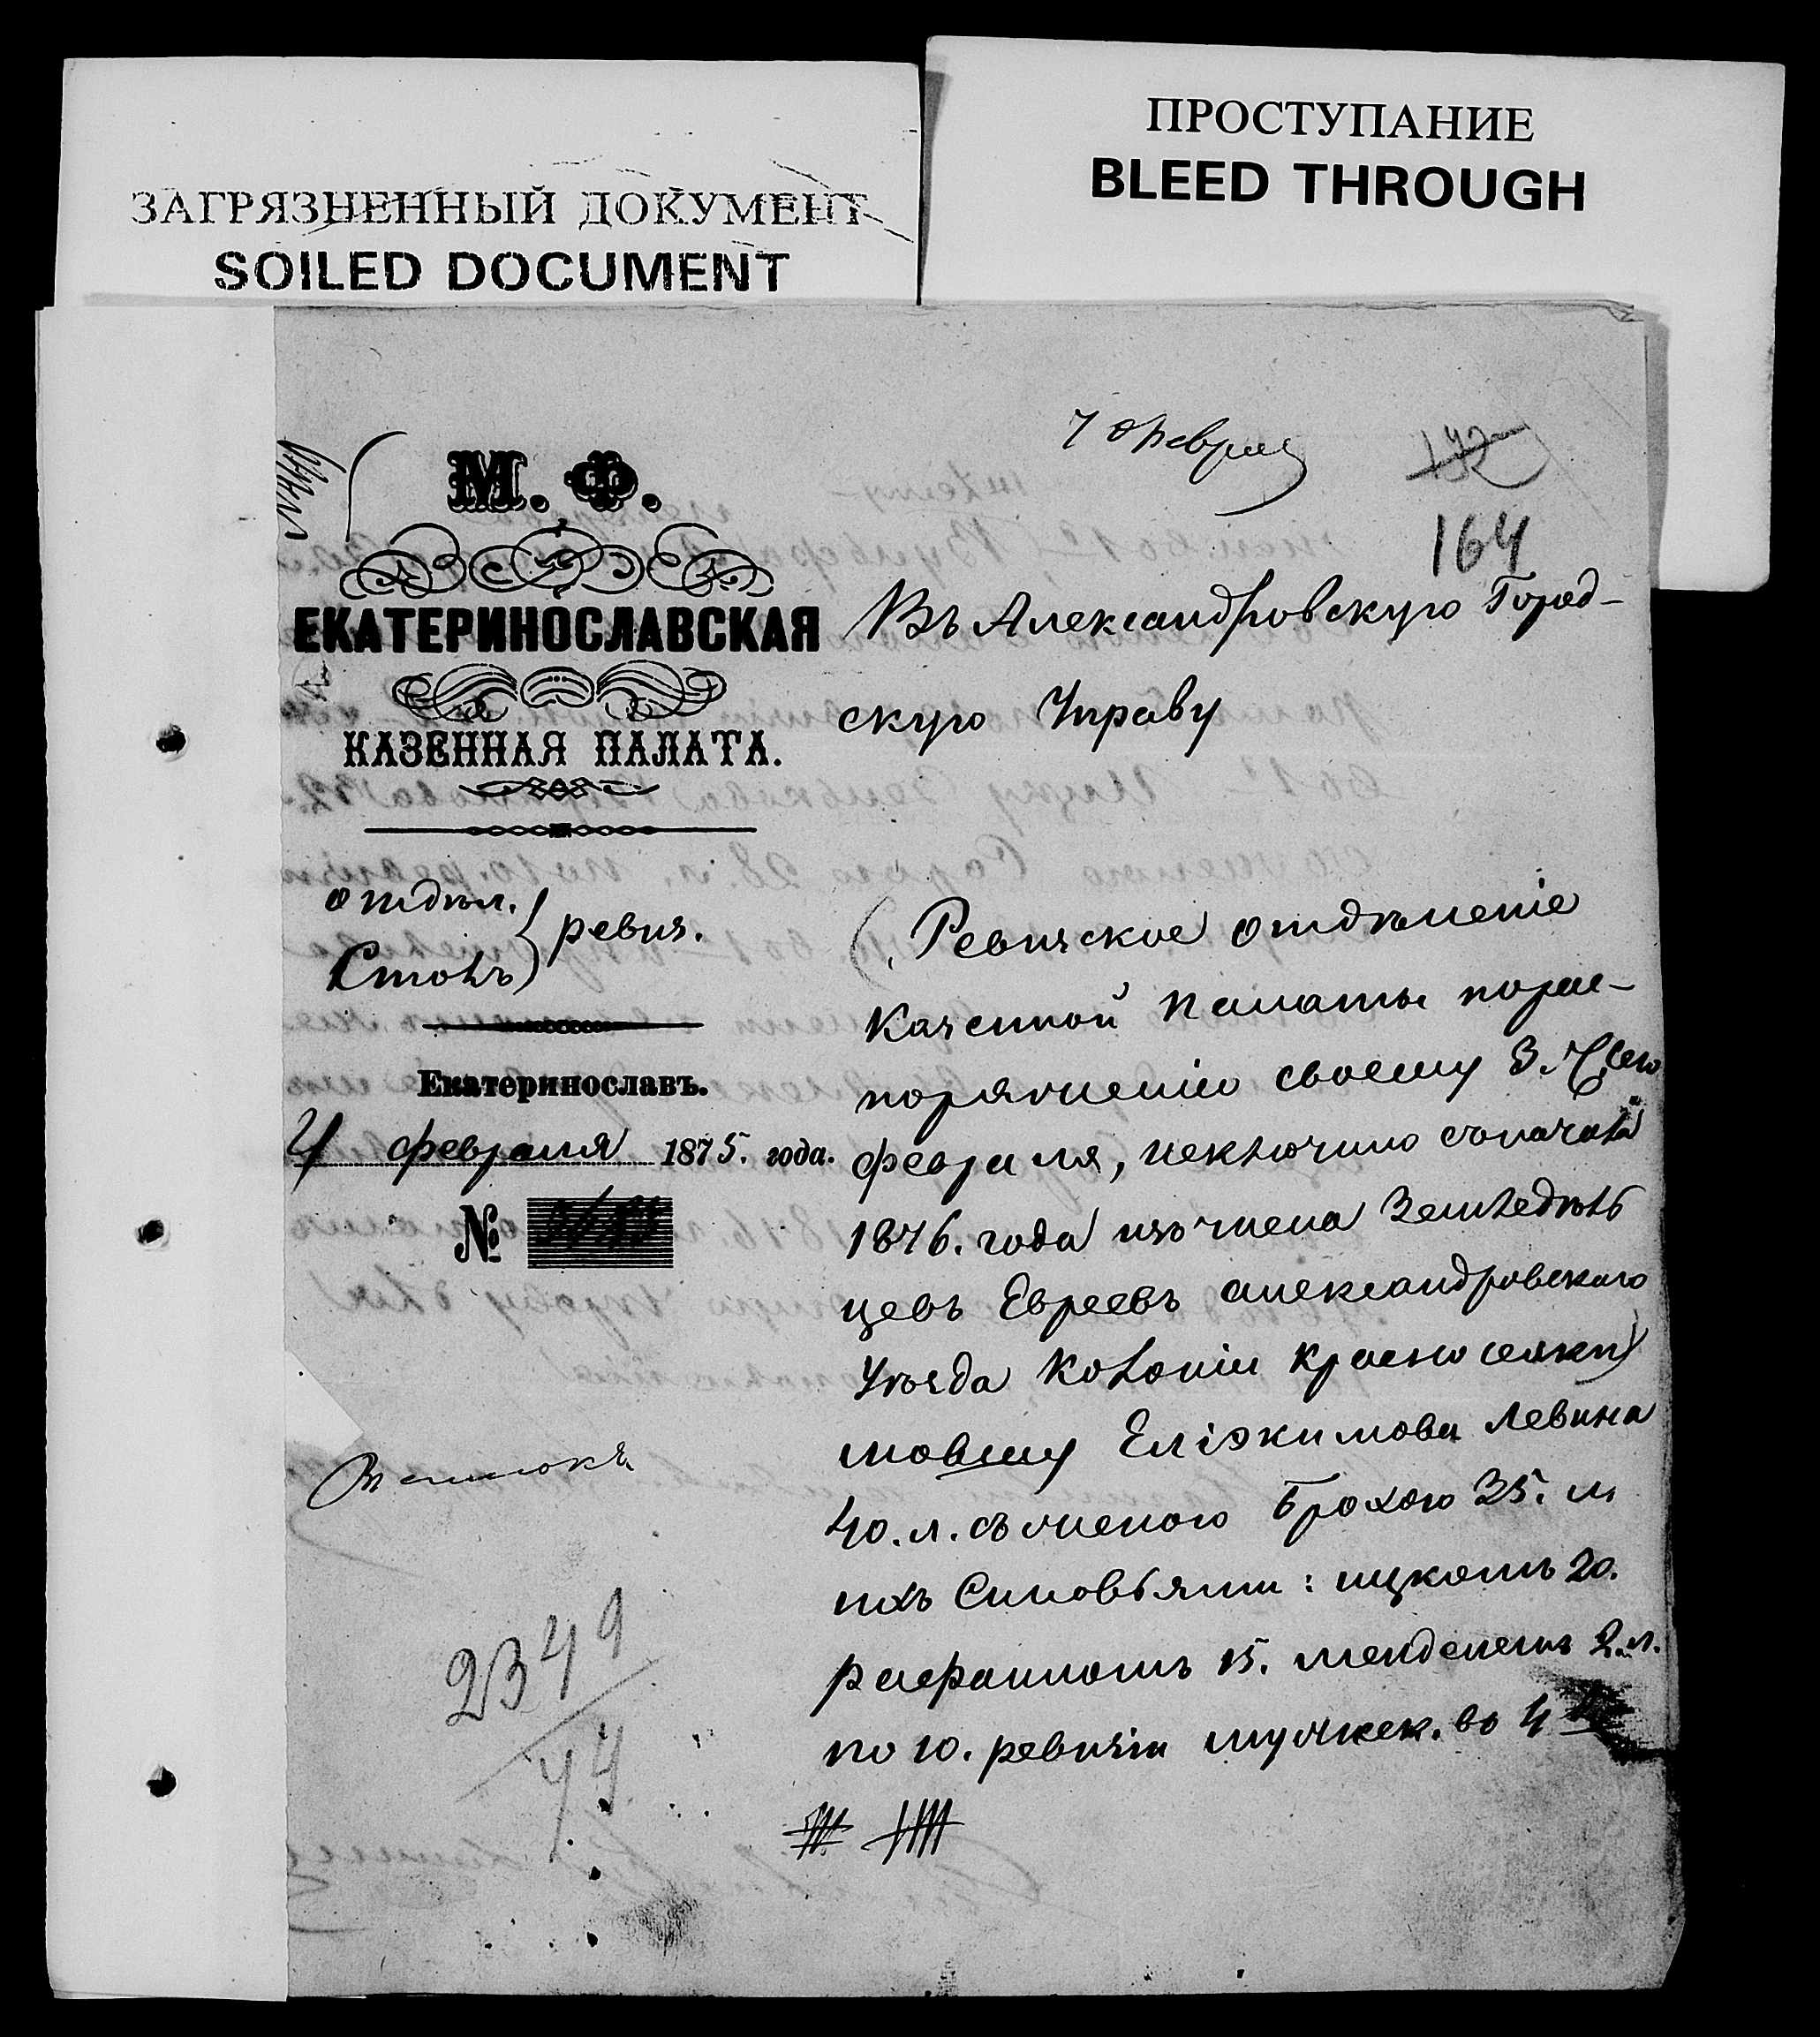 ПРОСТУПАНИЕ
BLEED THROUGH
ЗАГРЯЗНЕННЫЙ ДОКУМЕНТ
SOILED DOCUMENT
7 Февраля
142
164
М. Ф.
ЕКАТЕРИНОСЛАВСКАЯ
КАЗЕННАЯ ПАЛАТА.
отдѣл.
Столъ
ревиз.
Екатеринославъ.
4 февраля 1875. года.
№
2349
44
Въ Александровскую Город-
скую Управу
Ревизское отдѣленіе
Казенной Палаты
поряженію своему 3. сего
февраля, исключило съ начала
1876. года изъ числа Земледѣль
цевъ Евреевъ Александровскаго
Уѣзда Колоніи Красноселки
мовшу Еліокимова Левина
40. л. съ женою Брохою 35. и
ихъ Сыновьями: ицкомъ 20.
рафаиломъ 15. менделемъ 2 л.
по 10. ревизіи мужеск. во 4